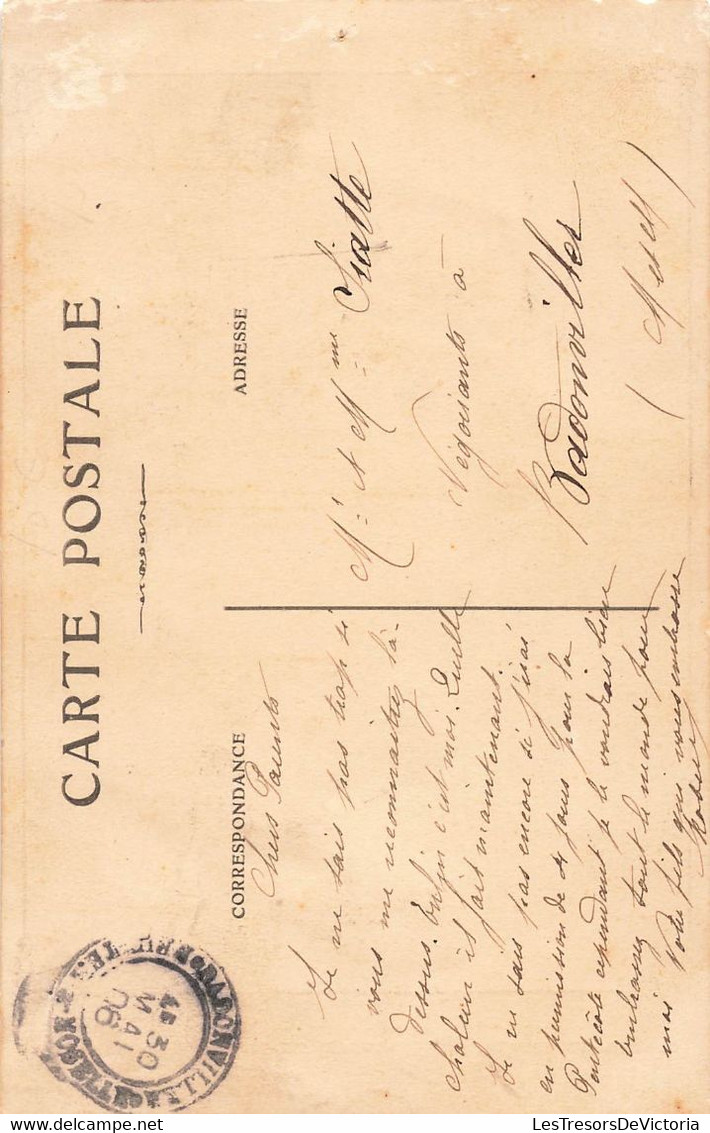 CARTE POSTALE
CORRESPONDANCE
ADRESSE
Chers Parents
Je ne sais pas trop si
vous me reconnaîtrez là-
dessus. Enfin c'est moi. Quelle
chaleur il fait maintenant.
Je ne sais pas encore si j'irai
en permission de 4 jours pour la
Pentecôte cependant je le voudrais bien
embrassez tout le monde pour
moi Votre fils qui vous embrasse
Mr et Mme Siatte
Négociants à
Badonviller
(M et M)
BADONVILLER
4E 30
MAI
06
LesTresorsDeVictoria.delcampe.net